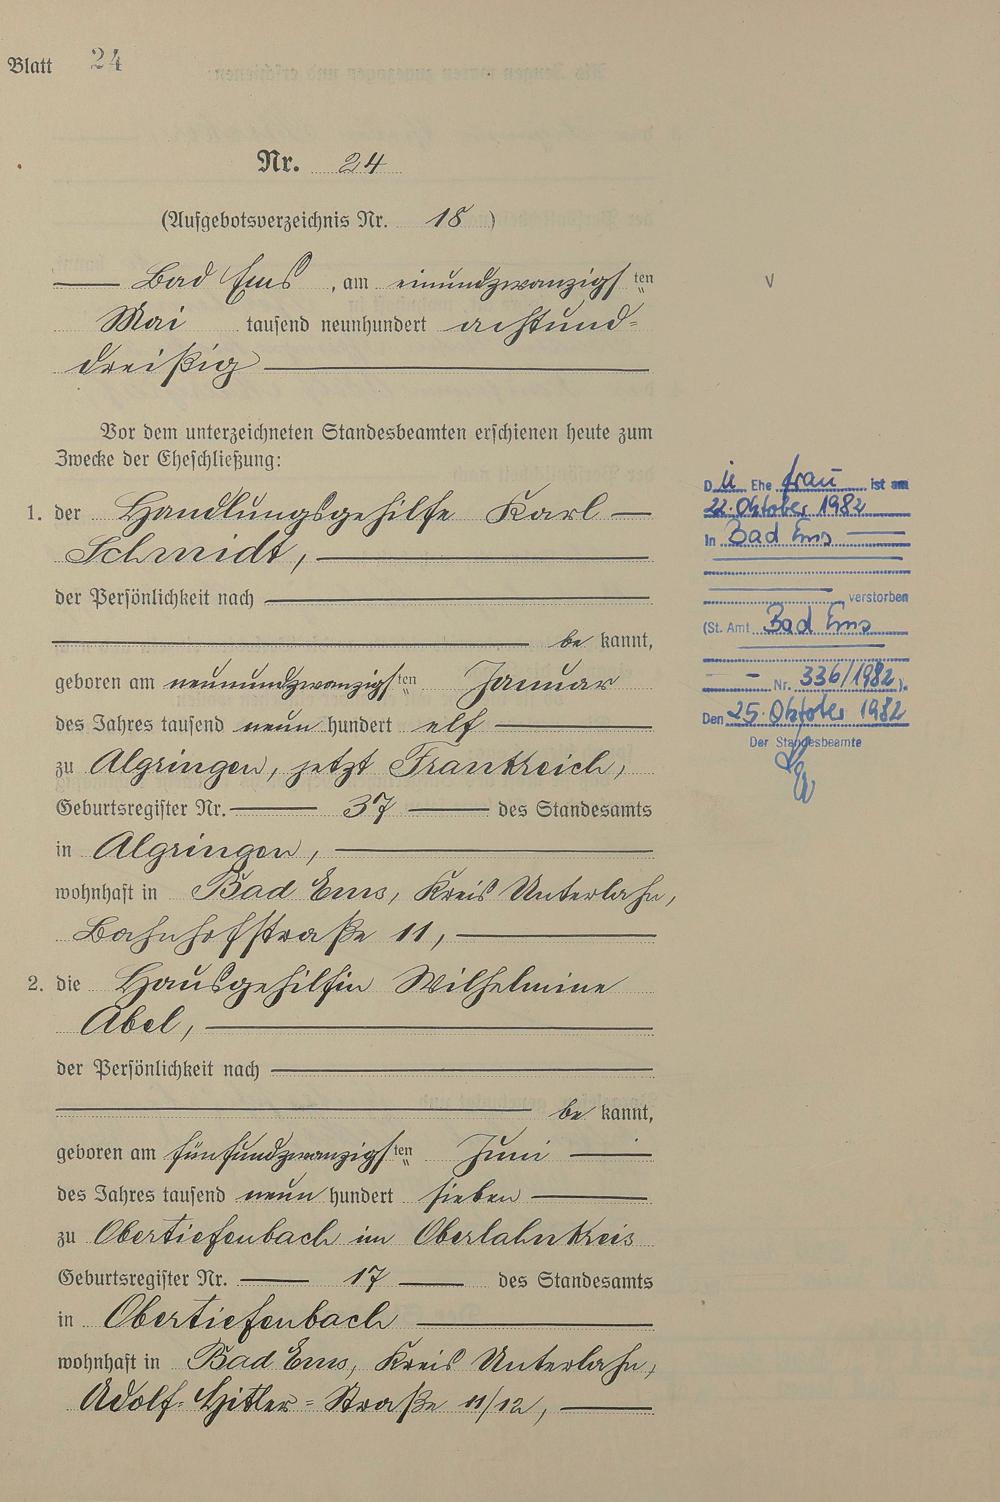 Blatt 24
Nr. 24
(Aufgebotsverzeichnis Nr. 18)
Bad Ems, am einundzwanzigsten
Mai tausend neunhundert achtund=
dreißig
Vor dem unterzeichneten Standesbeamten erschienen heute zum
Zwecke der Eheschließung:
1. der Handlungsgehilfe Karl
Schmidt,
der Persönlichkeit nach
be kannt,
geboren am neunundzwanzigsten Januar
des Jahres tausend neun hundert elf
zu Algringen, jetzt Frankreich,
Geburtsregister Nr. 37 des Standesamts
in Algringen,
wohnhaft in Bad Ems, Kreis Unterlahn,
Bahnhofstraße 11,
2. die Hausgehilfin Wilhelmine
Abel,
der Persönlichkeit nach
be kannt,
geboren am fünfundzwanzigsten Juni
des Jahres tausend neun hundert sieben
zu Obertiefenbach im Oberlahnkreis
Geburtsregister Nr. 17 des Standesamts
in Obertiefenbach
wohnhaft in Bad Ems, Kreis Unterlahn,
Adolf-Hitler-Straße 11/12,
Die Ehefrau ist am
22. Oktober 1982
in Bad Ems
verstorben
(St. Amt Bad Ems
Nr. 336/1982).
Den 25. Oktober 1982
Der Standesbeamte